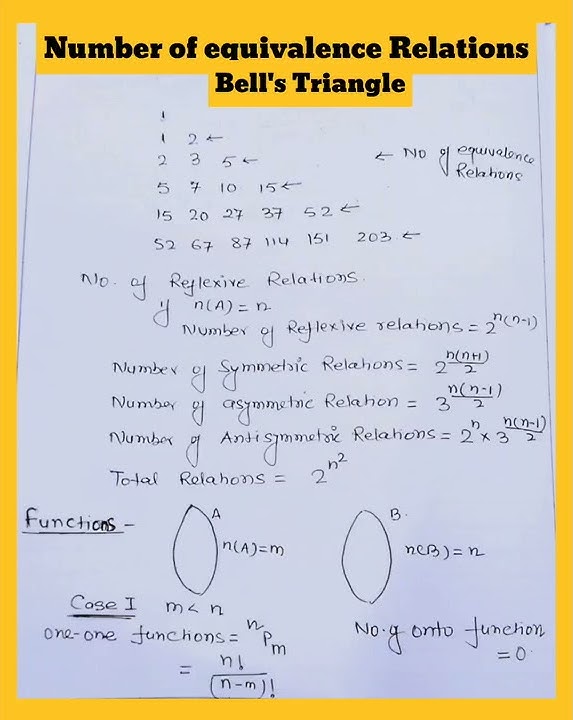 Number of equivalence Relations
Bell's Triangle
1
1 2 ←
2 3 5 ← ← No of equivalence Relations
5 7 10 15 ←
15 20 27 37 52 ←
52 67 87 114 151 203 ←
No. of Reflexive Relations.
if n(A) = n
Number of Reflexive relations = 2^{n(n-1)}
Number of Symmetric Relations = 2^{\frac{n(n+1)}{2}}
Number of asymmetric Relation = 3^{\frac{n(n-1)}{2}}
Number of Antisymmetric Relations = 2^n × 3^{\frac{n(n-1)}{2}}
Total Relations = 2^{n^2}
Functions -
A
n(A) = m
B.
n(B) = n
Case I m < n
one-one functions = ^nP_m
= \frac{n!}{(n-m)!}
No. of onto function
= 0